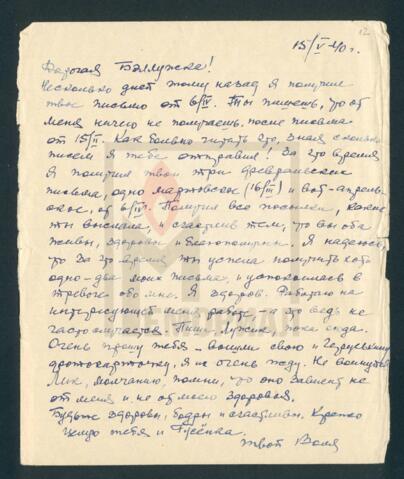 12
15/V 40 г.
Дорогая Бэллужка!
Несколько дней тому назад я получил
твое письмо от 6/IV. Ты пишешь, что от
меня ничего не получаешь, после письма
от 15/II. Как больно читать это, зная сколько
писем я тебе отправил! За это время
я получил твои три февральских
письма, одно мартовское (16/III) и вот - апрель-
ское, от 6/IV. Получил все посылки, какие
ты выслала, и счастлив тем, что вы оба
живы, здоровы и благополучны. Я надеюсь,
что за это время ты успела получить хоть
одно-два моих письма и успокоилась в
тревоге обо мне. Я здоров. Работаю на
интересующей меня работе, а это ведь не
часто случается. Пиши, Лужик, пока сюда.
Очень прошу тебя - вышли свою и
фотокарточку, я их очень жду. Не волнуйся
молчанию, помни, что оно зависит не
от меня и не от моего здоровья.
Будьте здоровы, бодры и счастливы. Крепко
целую тебя и
твой Воля